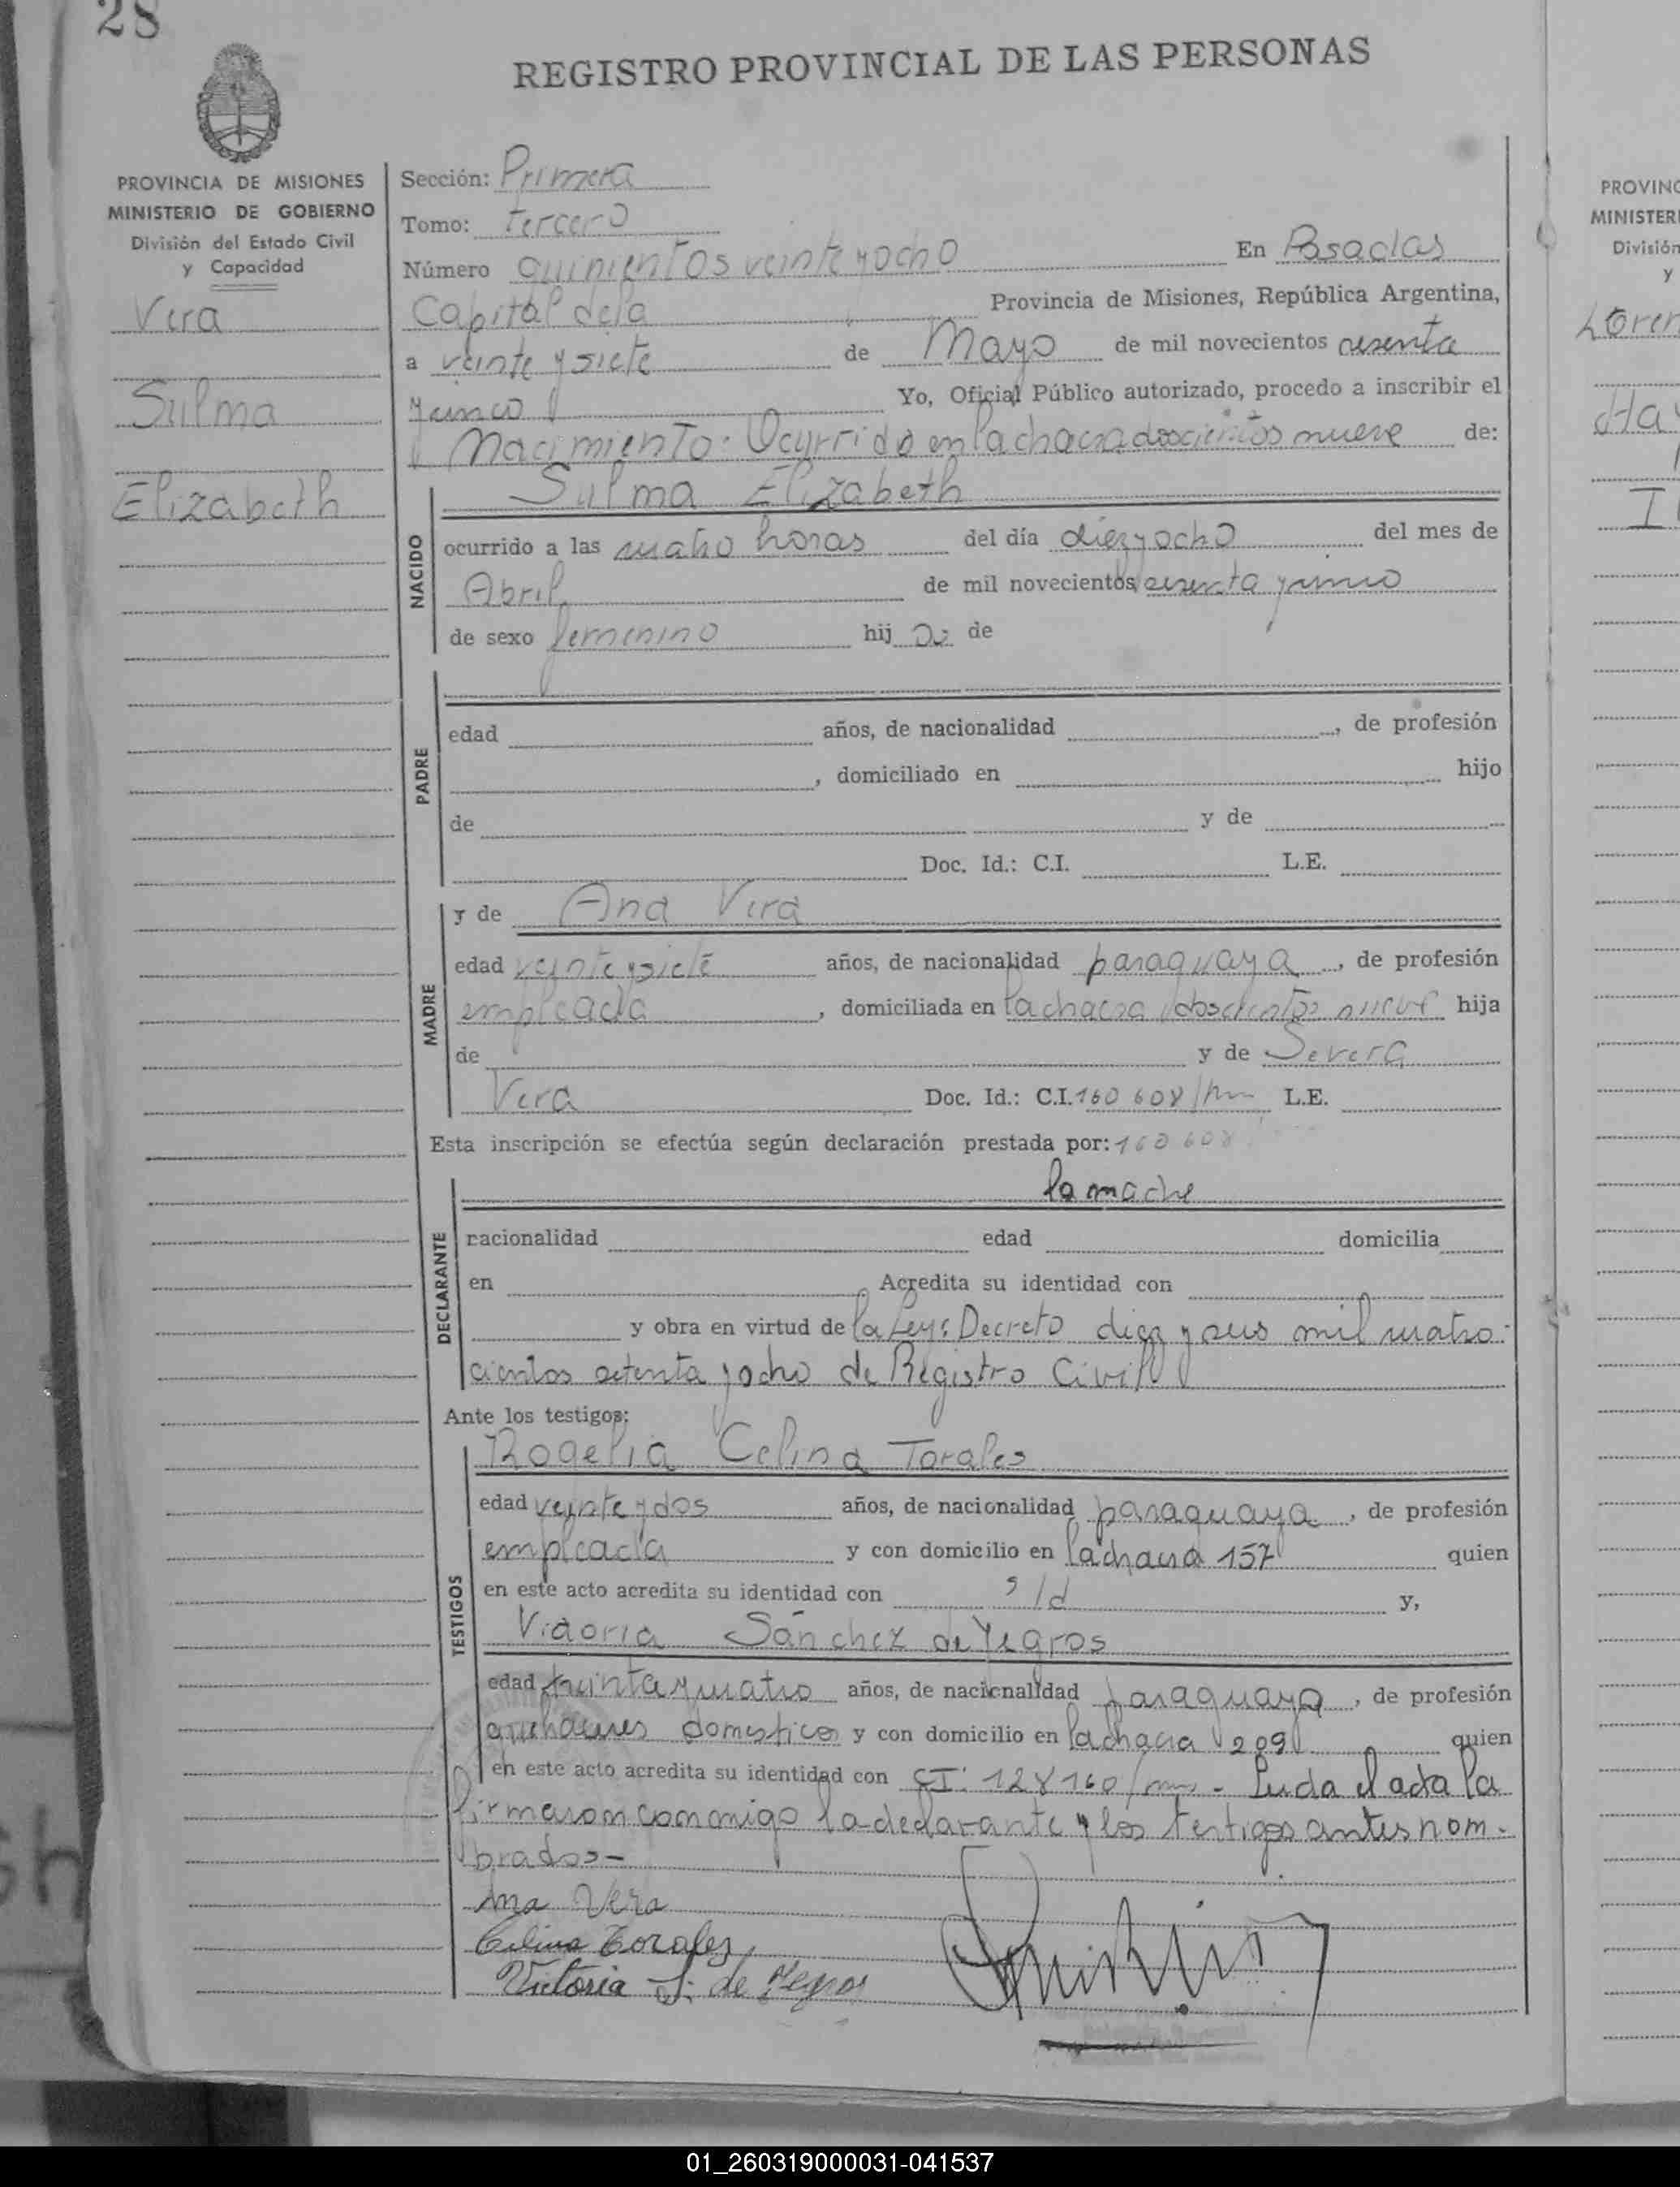 28
REGISTRO PROVINCIAL DE LAS PERSONAS
PROVINCIA DE MISIONES
MINISTERIO DE GOBIERNO
División del Estado Civil
y Capacidad
Vera
Sulma
Elizabeth
Sección: Primera
Tomo: tercero
Número quinientos veinte y ocho En Posadas
Capital de la Provincia de Misiones, República Argentina,
a veinte y siete de Mayo de mil novecientos sesenta
y cinco Yo, Oficial Público autorizado, procedo a inscribir el
Nacimiento: Ocurrido en la chacra doscientos nueve de:
Sulma Elizabeth
NACIDO
ocurrido a las cuatro horas del día diez y ocho del mes de
Abril de mil novecientos sesenta y cinco
de sexo femenino hij a de
PADRE
edad años, de nacionalidad , de profesión
, domiciliado en hijo
de y de
Doc. Id.: C.I. L.E.
MADRE
y de Ana Vera
edad veinte y siete años, de nacionalidad paraguaya , de profesión
empleada , domiciliada en la chacra doscientos nueve hija
de y de Severa
Vera Doc. Id.: C.I. 160 608 L.E.
Esta inscripción se efectúa según declaración prestada por: 160 608
la madre
DECLARANTE
nacionalidad edad domicilia
en Acredita su identidad con
y obra en virtud de la Ley: Decreto diez y seis mil cuatro-
cientos setenta y ocho de Registro Civil
Ante los testigos:
Rogelia Celina Torales
TESTIGOS
edad veinte y dos años, de nacionalidad paraguaya , de profesión
empleada y con domicilio en la chacra 157 quien
en este acto acredita su identidad con s/d y,
Victoria Sánchez de Yegros
edad treinta y cuatro años, de nacionalidad paraguaya , de profesión
quehaceres domesticos y con domicilio en la chacra 209 quien
en este acto acredita su identidad con CI: 128160 - Leida el acta la
firmaron conmigo la declarante y los testigos antes nom-
brados-
Ana Vera
Celina Torales
Victoria S. de Yegros
PROVINC
MINISTER
División
y
01_260319000031-041537